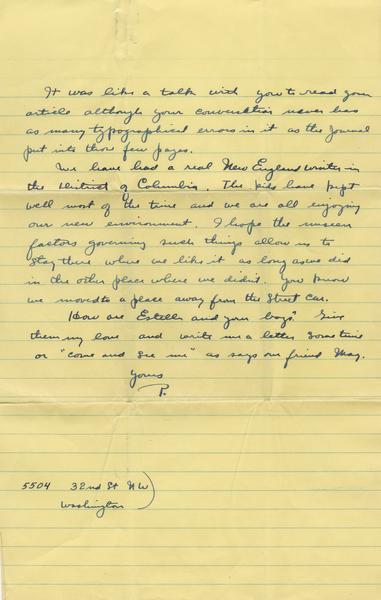 It was like a talk with you to read your
article although your conversation never has
as many typographical errors in it as the Journal
put into those few pages.
We have had a real New England winter in
the District of Columbia. The kids have kept
well most of the time and we are all enjoying
our new environment. I hope the unseen
factors governing such things allow us to
stay there where we like it as long as we did
in the other place where we didn't. You know
we moved to a place away from the street car.
How are Estelle and your boys? Give
them my love and write me a letter sometime
or "come and see me" as says our friend May.
Yours
P.
5504 32nd St NW)
Washington